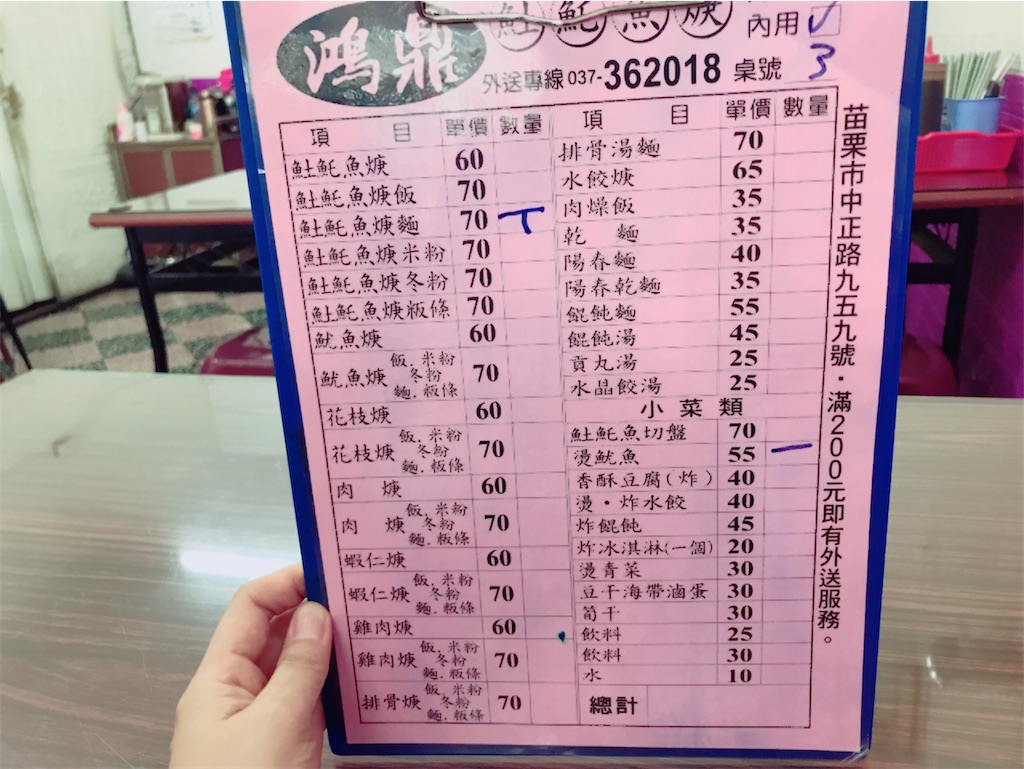 鴻鼎 𩵚魠魚焿
內用 ✓
外送專線 037-362018 桌號 3
項目 單價 數量
𩵚魠魚焿 60
𩵚魠魚焿飯 70
𩵚魠魚焿麵 70 丅
𩵚魠魚焿米粉 70
𩵚魠魚焿冬粉 70
𩵚魠魚焿粄條 70
魷魚焿 60
魷魚焿 飯.米粉 冬粉 麵.粄條 70
花枝焿 60
花枝焿 飯.米粉 冬粉 麵.粄條 70
肉焿 60
肉焿 飯.米粉 冬粉 麵.粄條 70
蝦仁焿 60
蝦仁焿 飯.米粉 冬粉 麵.粄條 70
雞肉焿 60
雞肉焿 飯.米粉 冬粉 麵.粄條 70
排骨焿 飯.米粉 冬粉 麵.粄條 70
項目 單價 數量
排骨湯麵 70
水餃焿 65
肉燥飯 35
乾麵 35
陽春麵 40
陽春乾麵 35
餛飩麵 55
餛飩湯 45
貢丸湯 25
水晶餃湯 25
小菜類
𩵚魠魚切盤 70
燙魷魚 55 一
香酥豆腐(炸) 40
燙·炸水餃 40
炸餛飩 45
炸冰淇淋(一個) 20
燙青菜 30
豆干海帶滷蛋 30
筍干 30
飲料 25
飲料 30
水 10
總計
苗栗市中正路九五九號·滿200元即有外送服務。